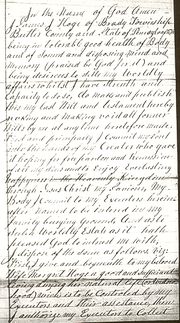 In the Name of God Amen
I James Hoge of Brady Township
Butler County and State of Pennsylvania
being in tolerable good health of Body
and of Sound and disposing Mind and
Memory (praised be God for it) and
being desirous to settle my Worldly
affairs whilst I have Strength and
Capacity so to do, do make and publish
this my last Will and testament hereby
revoking and Making void all former
Wills by me at any time heretofore made
and first and principally I commit my Soul
into the hands of my Creator who gave
it hoping for free pardon and remission
of all my Sins and to Enjoy Everlasting
happiness in his heavenly Kingdom
through Jesus Christ my Saviour, My
Body I commit to my Executors herein
after named to be interred in my
family burying ground, And as to
Such Worldly Estate as it hath
pleased God to intrust me with,
I dispose of the same as follows, Viz
First, I give and bequeath to my beloved
Wife Margret Hoge a good and sufficient
living during her natural life
good which is to be Controled by my
Executors and their assistance, then
I authorize my Executor to Collect